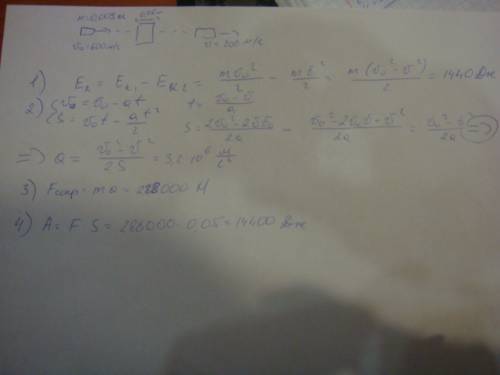 m=0,009кг 0,05м
v₀=600 м/с v=200 м/с
1) Eк = Eк1 - Eк2 = mv₀²/2 - mv²/2 = m(v₀²-v²)/2 = 1440 Дж
2) { v = v₀ - at t = (v₀-v)/a
S = v₀t - at²/2 S = (2v₀²-2vv₀)/2a - (v₀²-2v₀v+v²)/2a = (v₀²-v²)/2a =>
=> a = (v₀²-v²)/2S = 3,2·10⁶ м/с²
3) Fсопр = ma = 288000 Н
4) A = F·S = 288000·0,05 = 14400 Дж